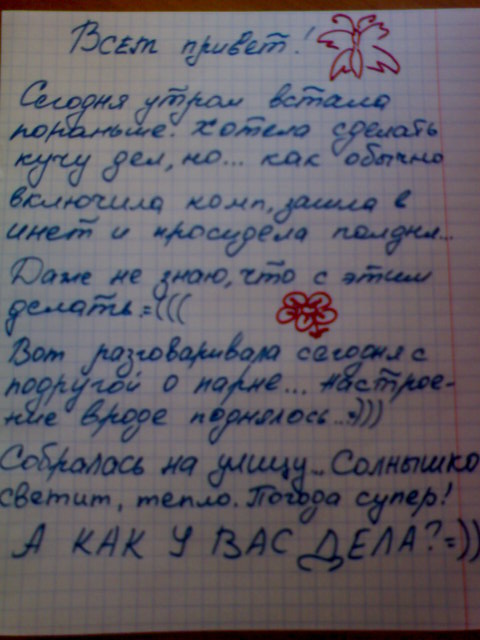 Всем привет!
Сегодня утром встала
пораньше. Хотела сделать
кучу дел, но... как обычно
включила комп, зашла в
инет и просидела полдня...
Даже не знаю, что с этим
делать.=(((
Вот разговаривала сегодня с
подругой о парне... настрое-
ние вроде поднялось...=)))
Собралась на улицу... Солнышко
светит, тепло. Погода супер!
А КАК У ВАС ДЕЛА?=))